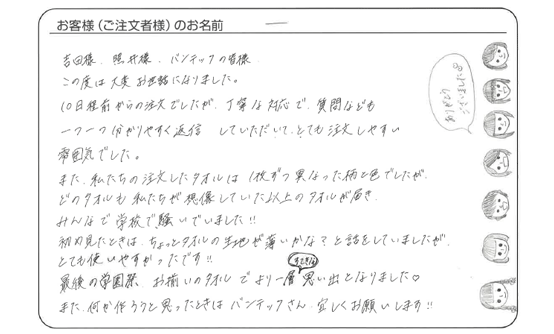 お客様（ご注文者様）のお名前
吉田様、照井様、バンテックの皆様
この度は大変お世話になりました。
10日程前からの注文でしたが、丁寧な対応で、質問なども
一つ一つ分かりやすく返信していただいて、とても注文しやすい
雰囲気でした。
また、私たちの注文したタオルは1枚ずつ異なった柄と色でしたが、
どのタオルも私たちが想像していた以上のタオルが届き、
みんなで学校で騒いでいました!!
初め見たときは、ちょっとタオルの生地が薄いかな？と話をしていましたが、
とても使いやすかったです!!
最後の学園祭、お揃いのタオルでより一層すてきな思い出となりました♡
また、何か作ろうと思ったときはバンテックさん、宜しくお願いします!!
ありがとう
ございました。